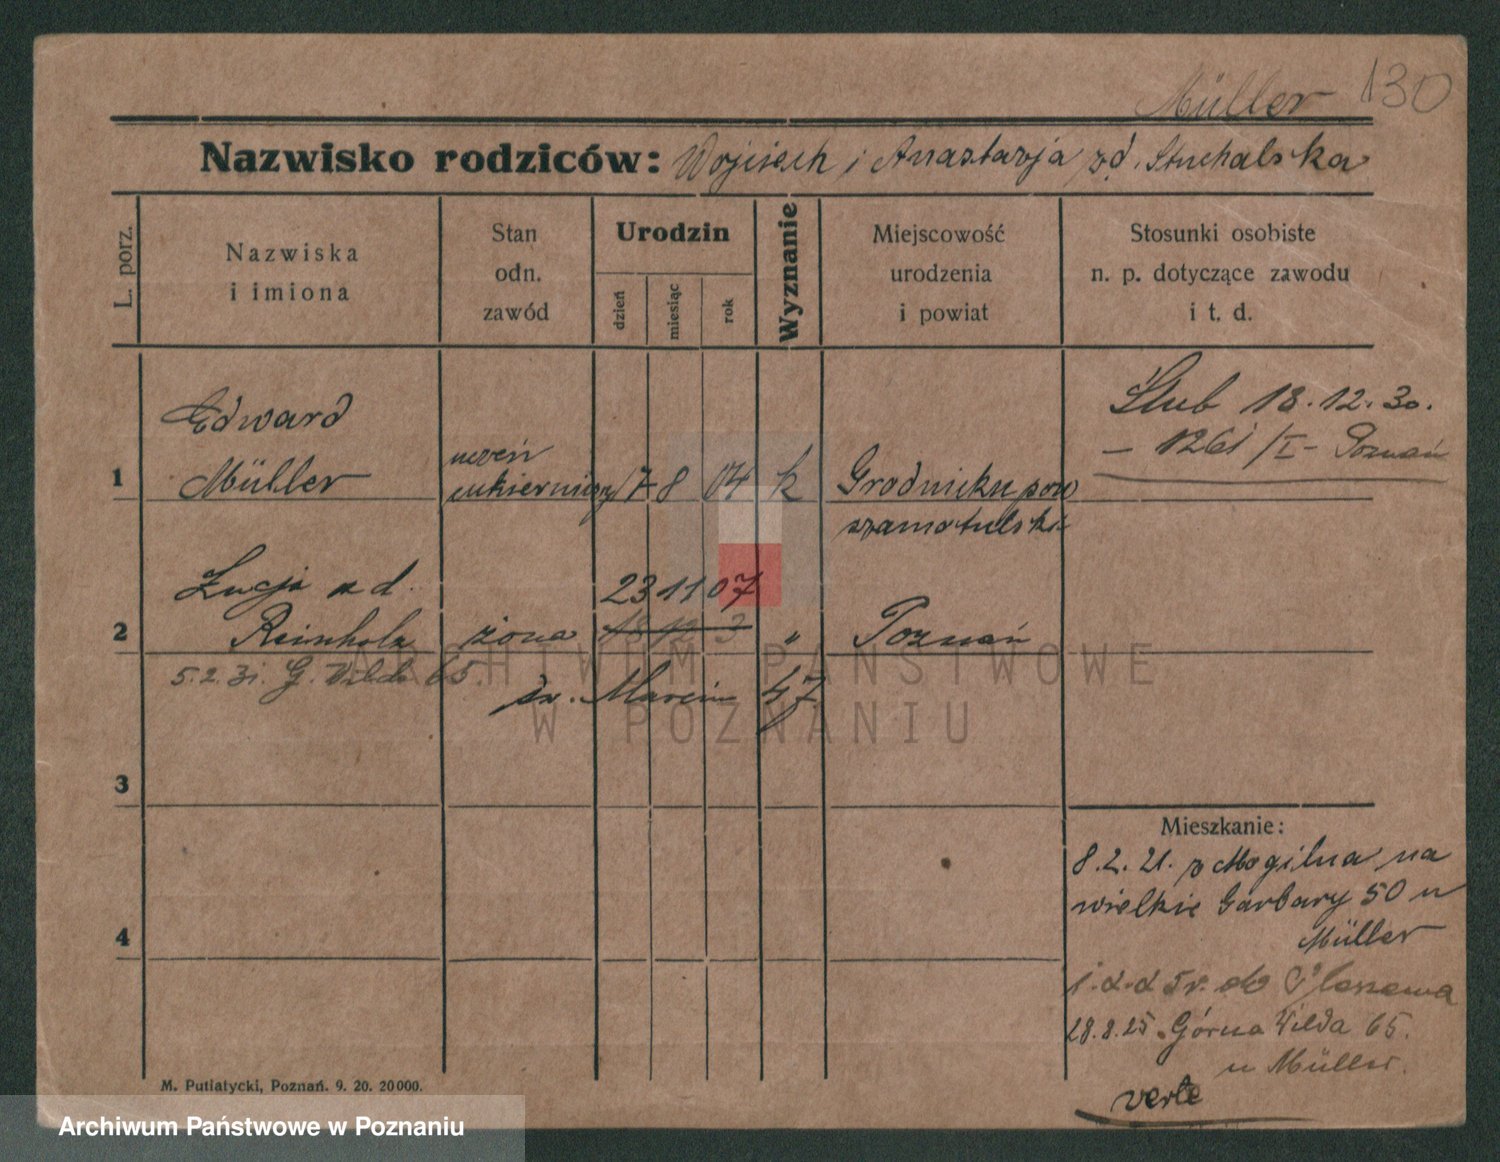 Müller 130
Nazwisko rodziców: Wojciech i Anastazja zd. Stuchalska
L. porz.
Nazwiska
i imiona
Stan
odn.
zawód
Urodzin
dzień
miesiąc
rok
Wyznanie
Miejscowość
urodzenia
i powiat
Stosunki osobiste
n. p. dotyczące zawodu
i t. d.
Ślub 18.12.30.
– 1261/I – Poznań
1
Edward
Müller
uczeń
cukierniczy
7 8 04 k
Grodniku pow
szamotulski
2
Łucja zd.
Reinholz
żona
23 11 07
18 12 3
"
Poznań
5.2.31. G. Wilda 65.
św. Marcin 47
3
4
Mieszkanie:
8.2.21. z Mogilna na
wielkie Garbary 50 u
Müller
do
28.8.25. Górna Wilda 65.
u Müller.
verte
M. Putiatycki, Poznań. 9. 20. 20000.
ARCHIWUM PAŃSTWOWE
W POZNANIU
Archiwum Państwowe w Poznaniu